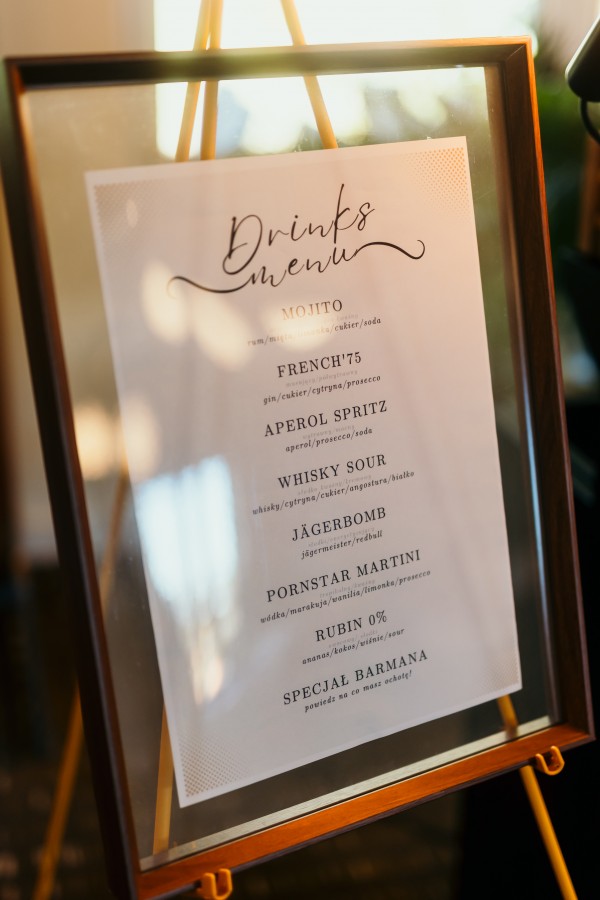 Drinks
menu
MOJITO
rum/mięta/woda/cukier/soda
FRENCH'75
gin/cukier/cytryna/prosecco
APEROL SPRITZ
aperol/prosecco/soda
WHISKY SOUR
whisky/cytryna/cukier/angostura/białko
JÄGERBOMB
jägermeister/redbull
PORNSTAR MARTINI
wódka/marakuja/wanilia/limonka/prosecco
RUBIN 0%
ananas/kokos/wiśnie/sour
SPECJAŁ BARMANA
powiedz na co masz ochotę!